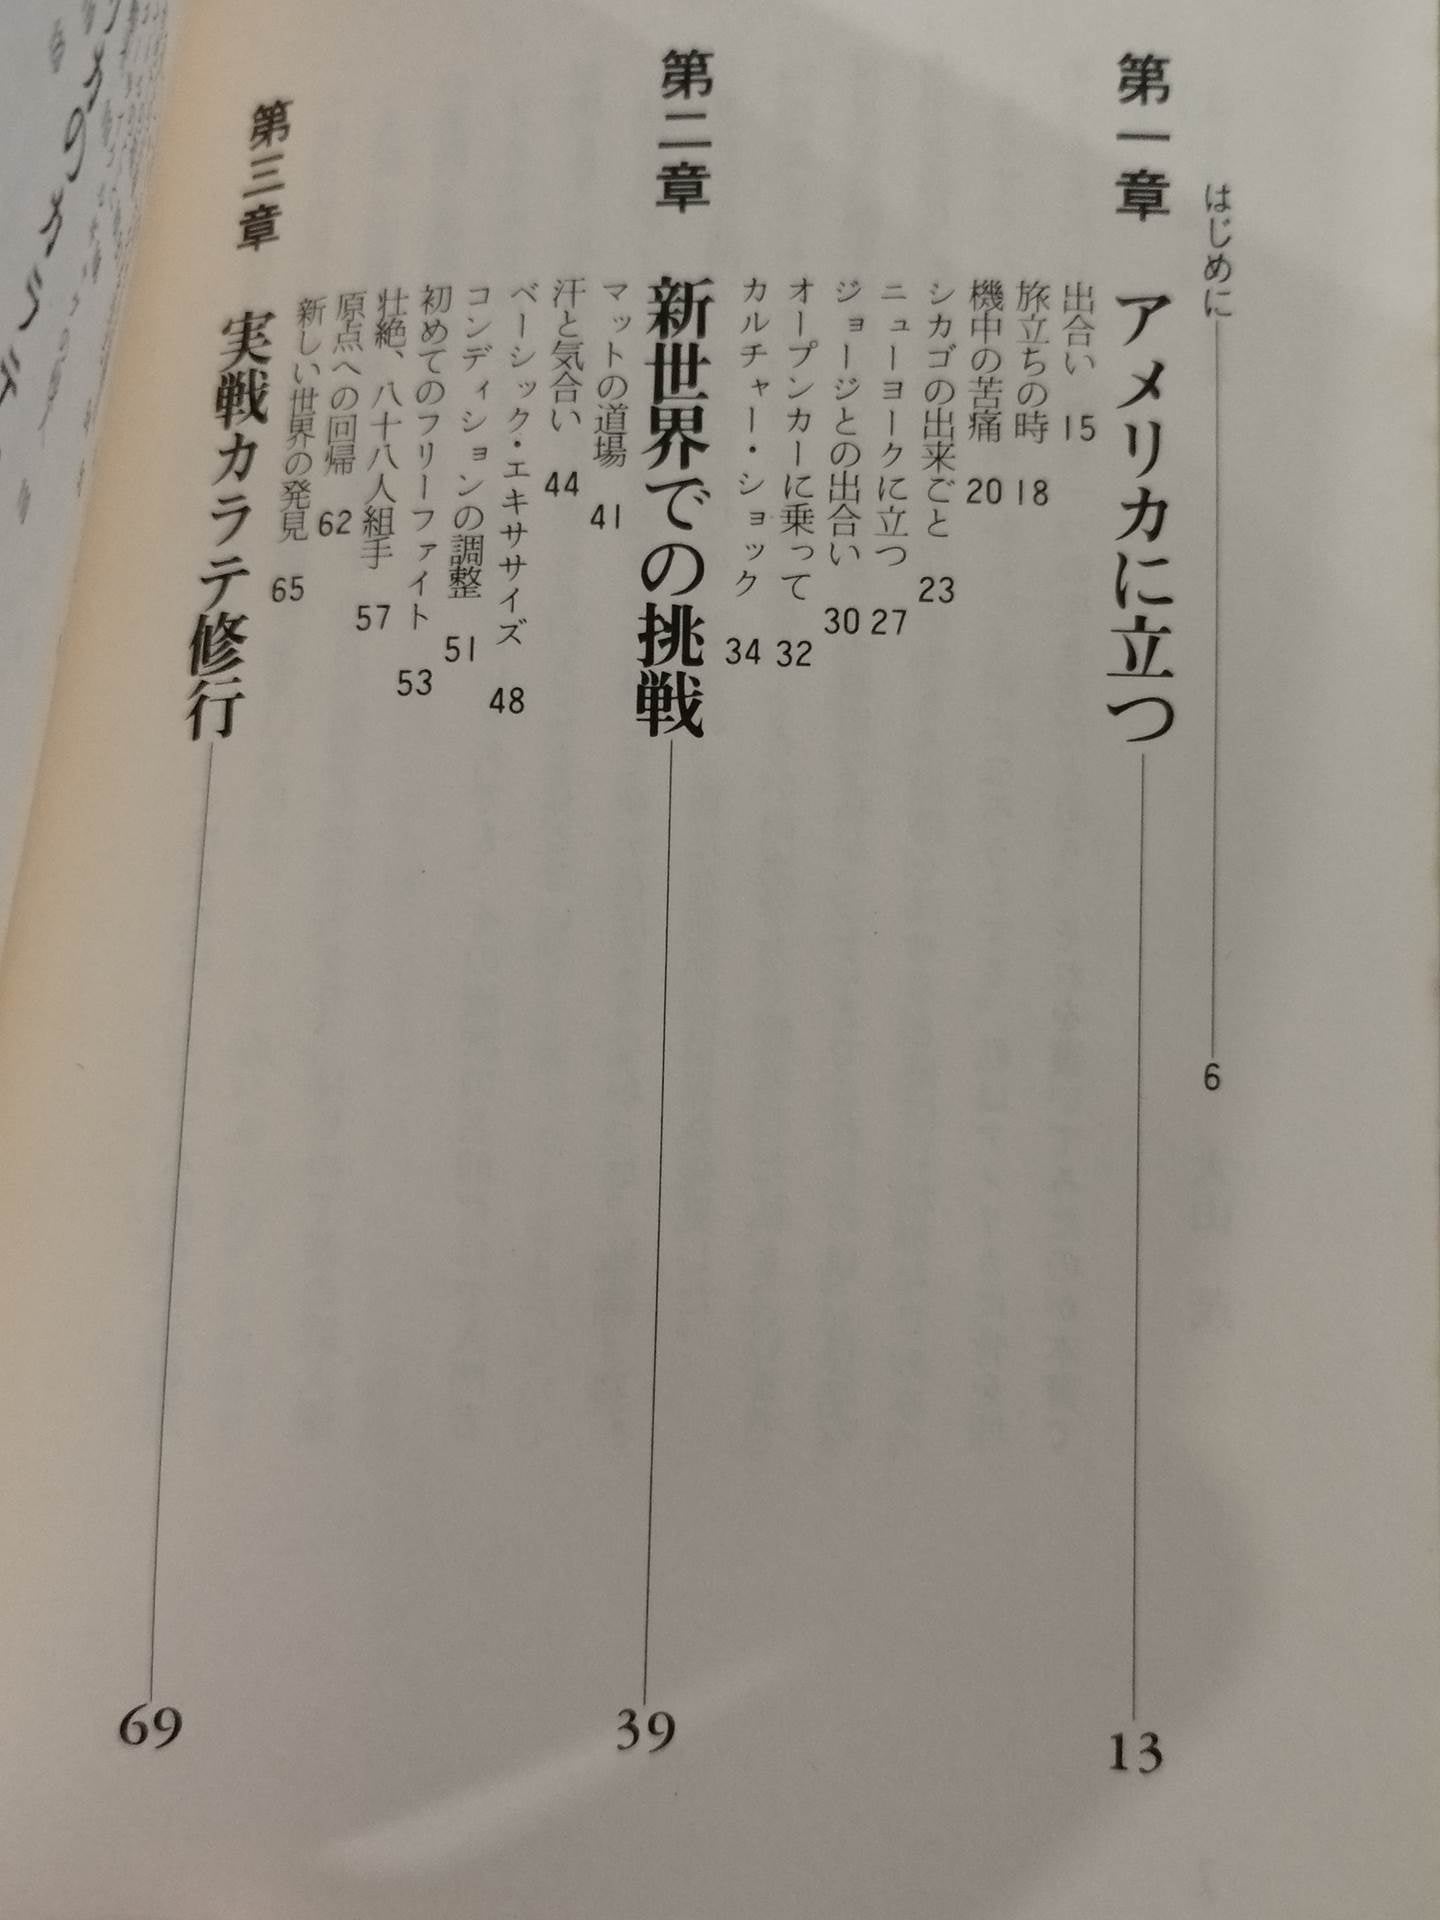 はじめに 6
第一章 アメリカに立つ 13
出合い 15
旅立ちの時 18
機中の苦痛 20
シカゴの出来ごと 23
ニューヨークに立つ 27
ジョージとの出合い 30
オープンカーに乗って 32
カルチャー・ショック 34
第二章 新世界での挑戦 39
マットの道場 41
汗と気合い 44
ベーシック・エキササイズ 48
コンディションの調整 51
初めてのフリーファイト 53
壮絶、八十八人組手 57
原点への回帰 62
新しい世界の発見 65
第三章 実戦カラテ修行 69